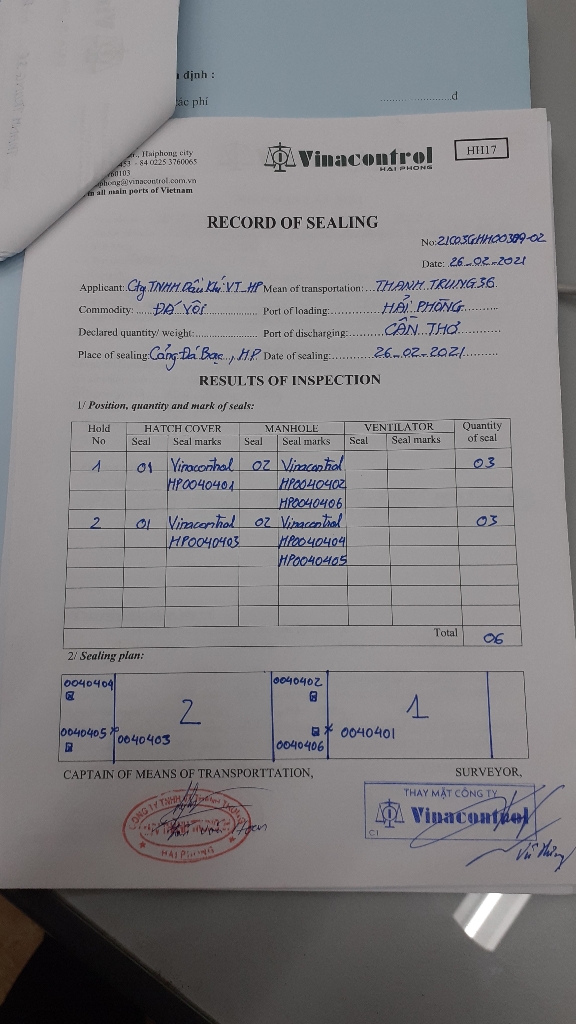 định :
các phí ....................đ
Haiphong city
- 84 0225 3760065
60103
phong@vinacontrol.com.vn
in all main ports of Vietnam
Vinacontrol
HAI PHONG
HH17
RECORD OF SEALING
No: 21C03GHH00389-02
Date: 26-02-2021
Applicant: Cty TNHH Dầu Khí VT-HP Mean of transportation: THANH TRUNG 36
Commodity: ĐÁ VÔI Port of loading: HẢI PHÒNG
Declared quantity/ weight: Port of discharging: CẦN THƠ
Place of sealing: Cảng Đá Bạc, HP Date of sealing: 26-02-2021
RESULTS OF INSPECTION
1/ Position, quantity and mark of seals:
Hold No HATCH COVER MANHOLE VENTILATOR Quantity of seal
Seal Seal marks Seal Seal marks Seal Seal marks
1 01 Vinacontrol 02 Vinacontrol 03
HP0040401 HP0040402
HP0040406
2 01 Vinacontrol 02 Vinacontrol 03
HP0040403 HP0040404
HP0040405
Total 06
2/ Sealing plan:
0040404 2 0040402 1
0040405 0040403 0040406 0040401
CAPTAIN OF MEANS OF TRANSPORTTATION, SURVEYOR,
CÔNG TY TNHH
HẢI PHÒNG
THAY MẶT CÔNG TY
Vinacontrol
C1